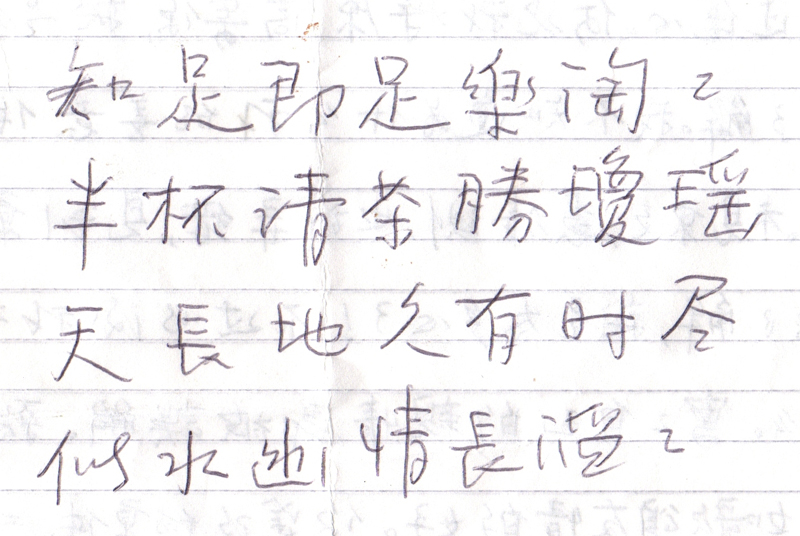 知足即足樂淘〻
半杯清茶勝瓊瑶
天長地久有时尽
似水 情長滔〻